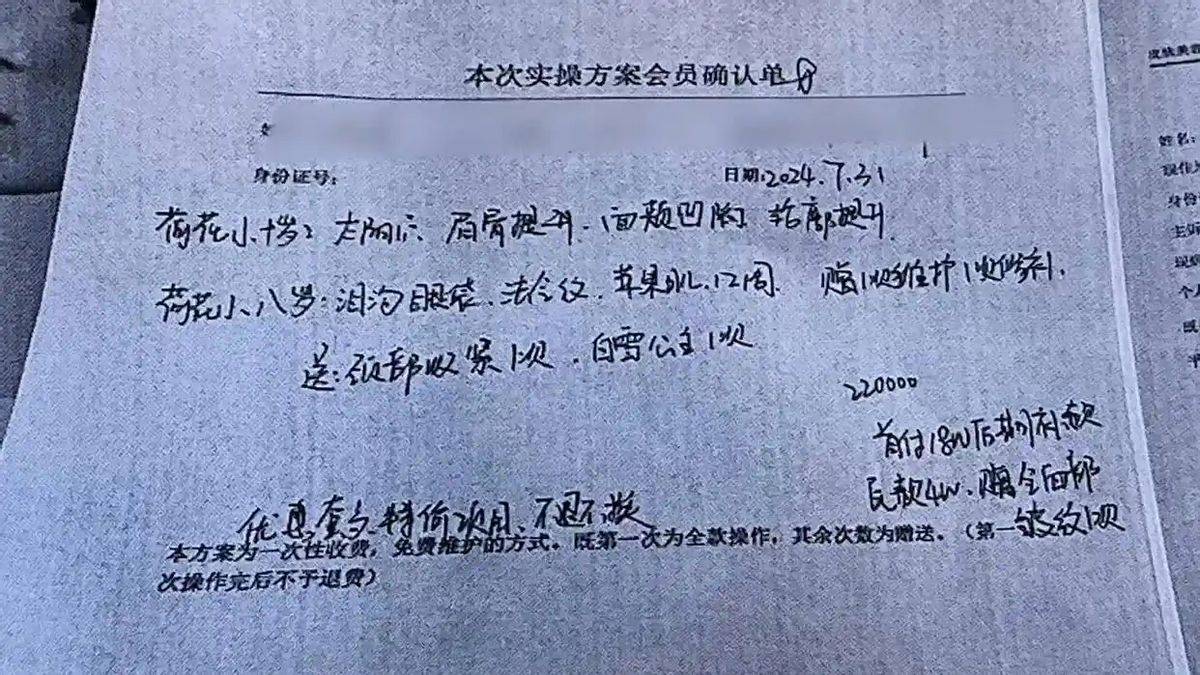 本次实操方案会员确认单
身份证号：
日期：2024.7.31
荷花小十岁：太阳穴、眉骨提升、面颊凹陷、提升
荷花小八岁：泪沟眼袋、法令纹、苹果肌、口周 赠1次维护1次
送：颈部收紧1次、白雪公主1次
220000
首付18W后期补款
尾款4W、赠全面部
皱纹1次
优惠套多特价项目、不退不换
本方案为一次性收费，免费维护的方式。既第一次为全款操作，其余次数为赠送。（第一
次操作完后不于退费）
姓名：
身份
个
既